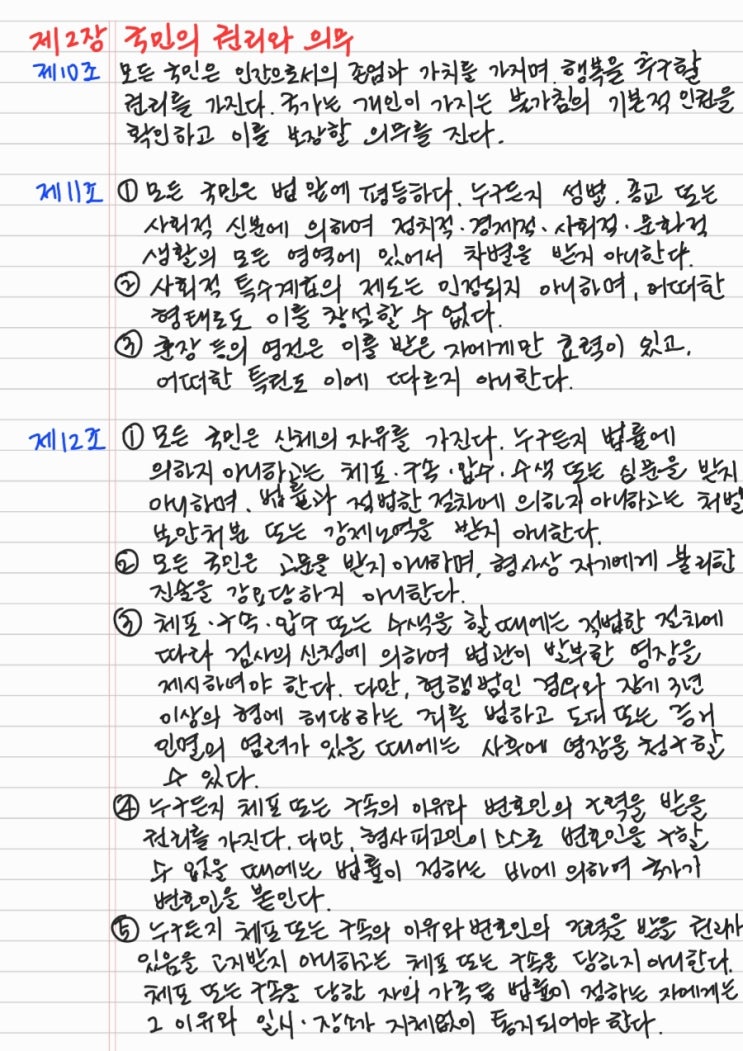 제2장 국민의 권리와 의무
제10조 모든 국민은 인간으로서의 존엄과 가치를 가지며, 행복을 추구할
권리를 가진다. 국가는 개인이 가지는 불가침의 기본적 인권을
확인하고 이를 보장할 의무를 진다.
제11조 ① 모든 국민은 법 앞에 평등하다. 누구든지 성별·종교 또는
사회적 신분에 의하여 정치적·경제적·사회적·문화적
생활의 모든 영역에 있어서 차별을 받지 아니한다.
② 사회적 특수계급의 제도는 인정되지 아니하며, 어떠한
형태로도 이를 창설할 수 없다.
③ 훈장 등의 영전은 이를 받은 자에게만 효력이 있고,
어떠한 특권도 이에 따르지 아니한다.
제12조 ① 모든 국민은 신체의 자유를 가진다. 누구든지 법률에
의하지 아니하고는 체포·구속·압수·수색 또는 심문을 받지
아니하며, 법률과 적법한 절차에 의하지 아니하고는 처벌
보안처분 또는 강제노역을 받지 아니한다.
② 모든 국민은 고문을 받지 아니하며, 형사상 자기에게 불리한
진술을 강요당하지 아니한다.
③ 체포·구속·압수 또는 수색을 할 때에는 적법한 절차에
따라 검사의 신청에 의하여 법관이 발부한 영장을
제시하여야 한다. 다만, 현행범인 경우와 장기 3년
이상의 형에 해당하는 죄를 범하고 도피 또는 증거
인멸의 염려가 있을 때에는 사후에 영장을 청구할
수 있다.
④ 누구든지 체포 또는 구속의 이유와 변호인의 조력을 받을
권리를 가진다. 다만, 형사피고인이 스스로 변호인을 구할
수 없을 때에는 법률이 정하는 바에 의하여 국가가
변호인을 붙인다.
⑤ 누구든지 체포 또는 구속의 이유와 변호인의 조력을 받을 권리가
있음을 고지받지 아니하고는 체포 또는 구속을 당하지 아니한다.
체포 또는 구속을 당한 자의 가족 등 법률이 정하는 자에게는
그 이유와 일시·장소가 지체없이 통지되어야 한다.